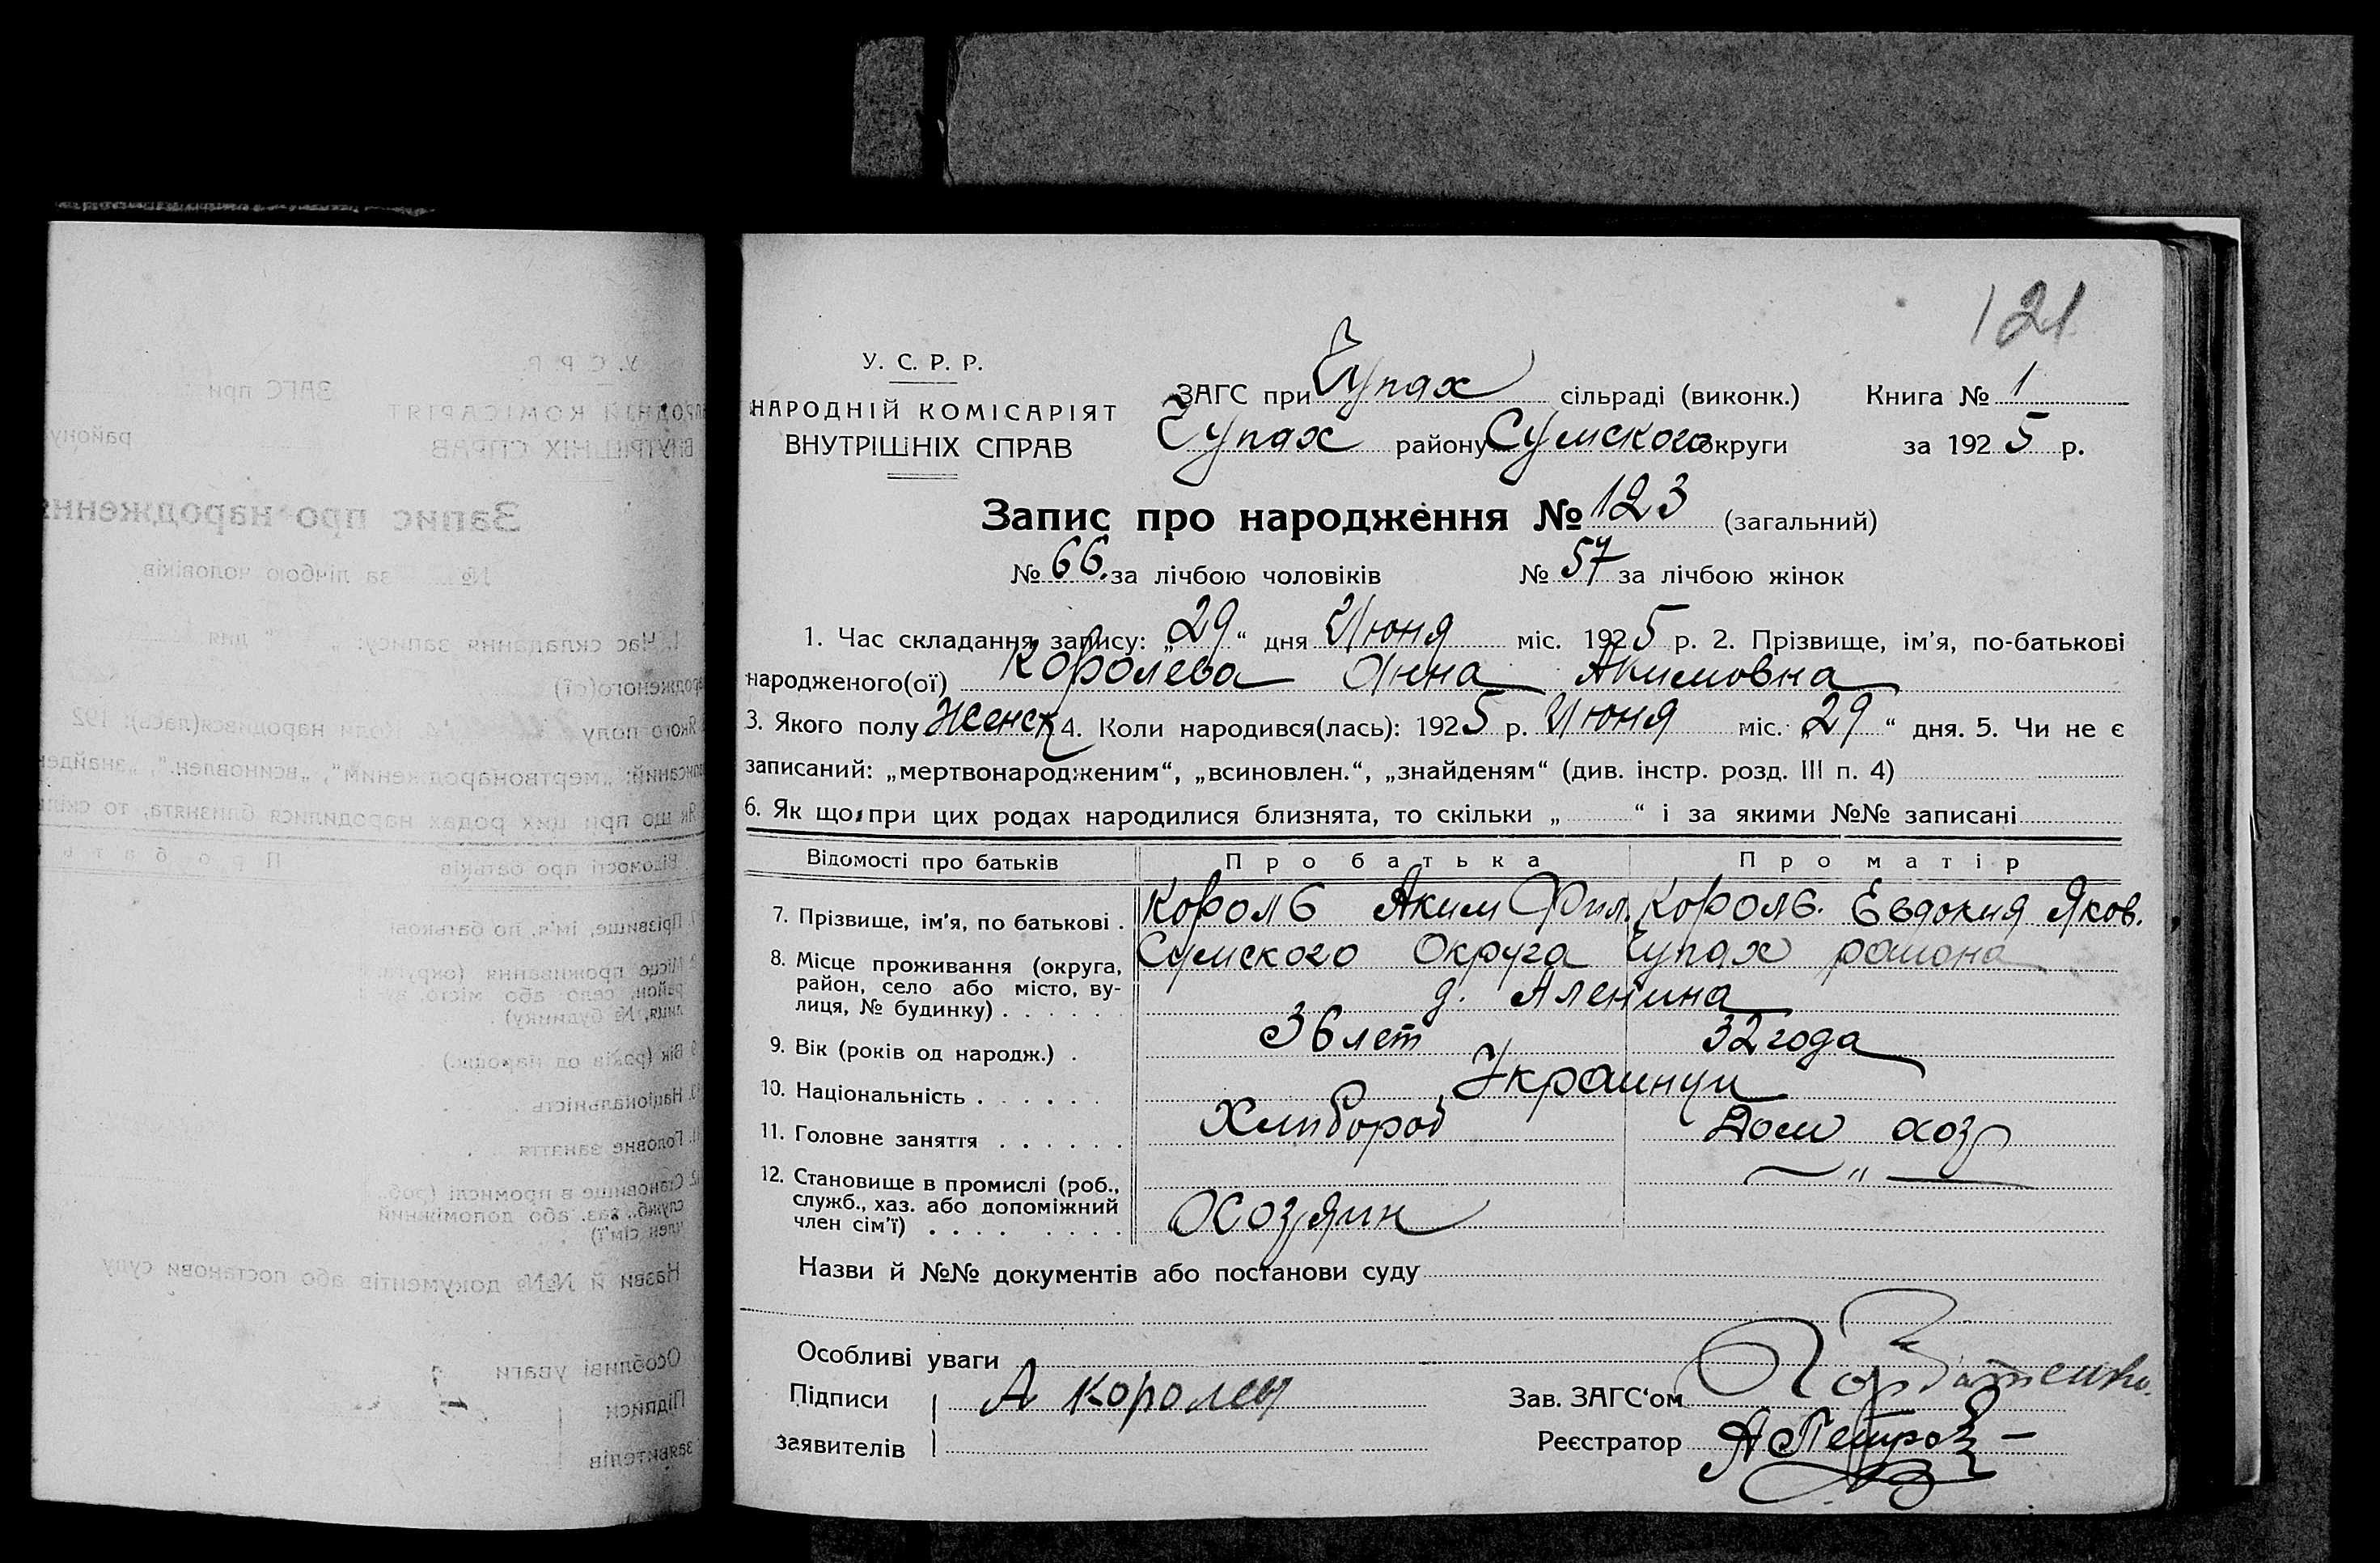 121
У. С. Р. Р.
НАРОДНІЙ КОМІСАРІЯТ
ВНУТРІШНІХ СПРАВ
ЗАГС при Чупах сільраді (виконк.) Книга № 1
Чупах району Сумского округи за 1925 р.
Запис про народження № 123 (загальний)
№ 66. за лічбою чоловіків № 57 за лічбою жінок
1. Час складання запису: „29“ дня Июня міс. 1925 р. 2. Прізвище, ім’я, по-батькові
народженого(ої) Королева Анна Акимовна
3. Якого полу Женск 4. Коли народився(лась): 1925 р. Июня міс. „29“ дня. 5. Чи не є
записаний: „мертвонародженим“, „всиновлен.“, „знайденям“ (див. інстр. розд. III п. 4)
6. Як що при цих родах народилися близнята, то скільки „ “ і за якими №№ записані
Відомості про батьків Про батька Про матір
7. Прізвище, ім’я, по батькові . Король Аким Фил. Король. Евдокия Яков.
8. Місце проживання (округа, район, село або місто, вулиця, № будинку) . . . . . . Сумского Округа Чупах района
д. Аленина
9. Вік (років од народж.) . 36 лет 32 года
10. Національність . . . . . . Украинци
11. Головне заняття . . . . . . Хлибороб Дом хоз
12. Становище в промислі (роб., служб., хаз. або допоміжний член сім’ї) . . . . . . . . Хозяин — " —
Назви й №№ документів або постанови суду
Особливі уваги
Підписи А Королен Зав. ЗАГС‘ом
заявителів Реєстратор А Петров